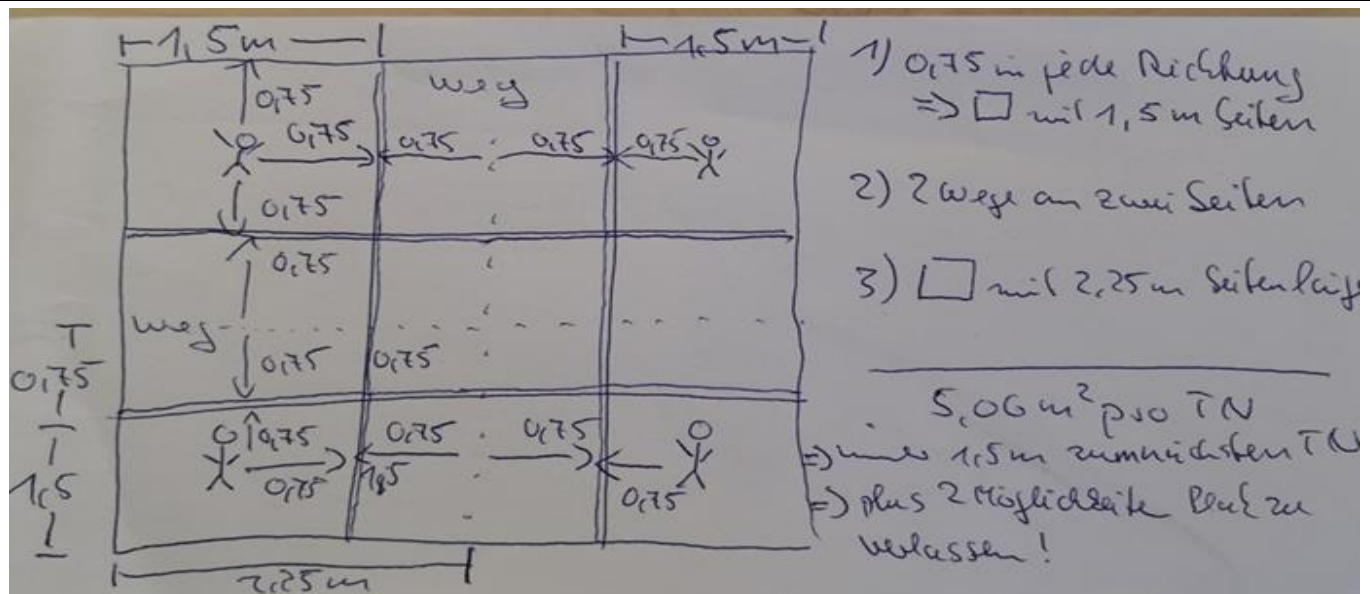 1,5m 1,5m
0,75 weg
0,75 0,75 0,75 0,75
0,75
0,75
weg
0,75 0,75
T
0,75
1,5
0,75 0,75 0,75
0,75 1,5 0,75
2,25m
1) 0,75 in jede Richtung
=> □ mit 1,5m Seiten
2) 2 Wege an zwei Seiten
3) □ mit 2,25m Seitenlänge
5,06 m² pro TN
=> 1,5m zum nächsten TN
=> plus 2 Möglichkeite zu
verlassen!